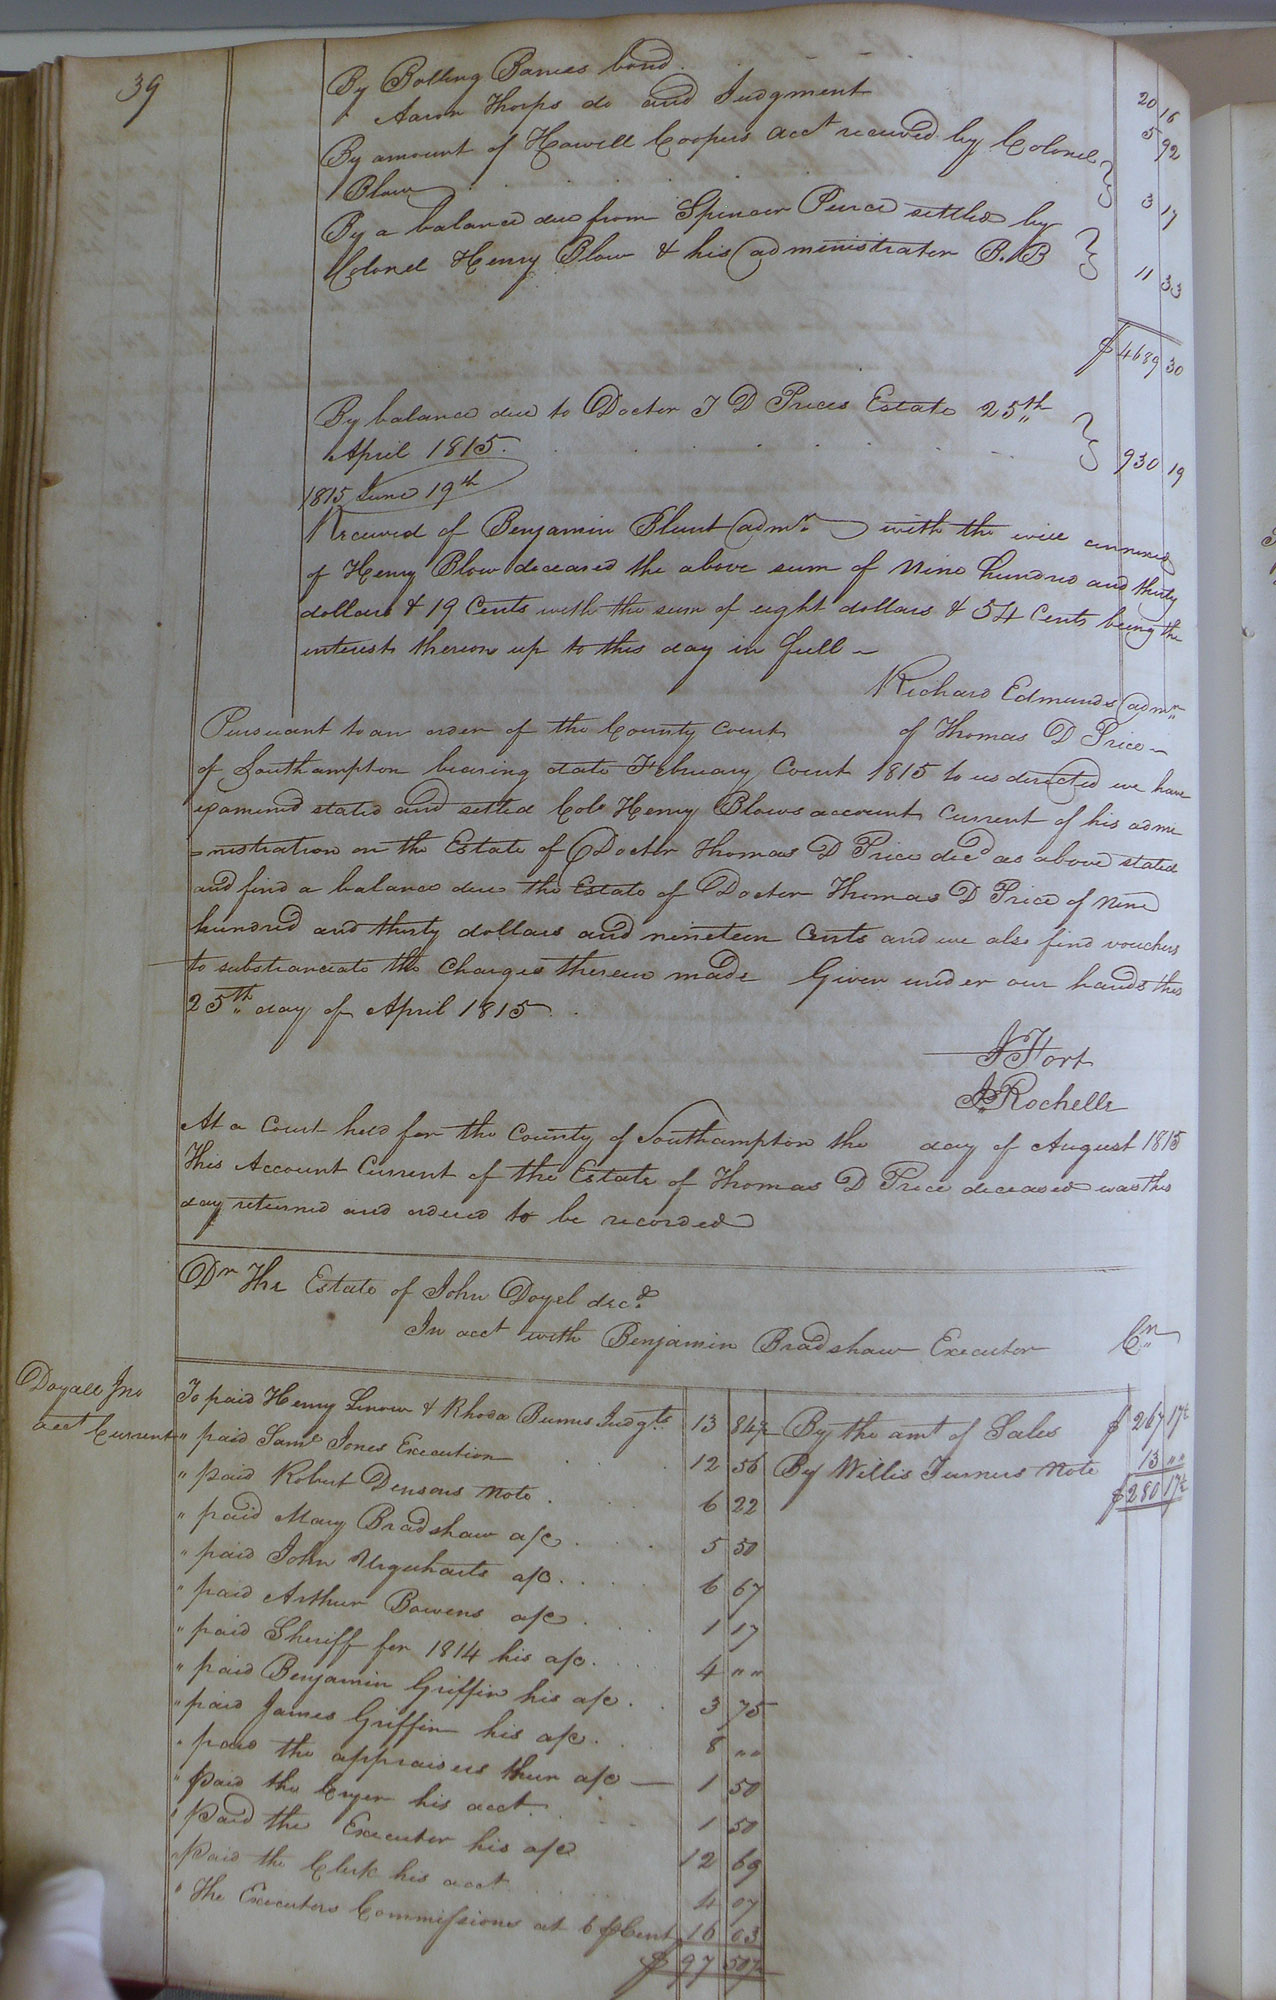 39
By Bolling Barnes bond 20 16
Aaron Thorps do and Judgment 5 92
By amount of Howell Coopers acct received by Colonel
Blow 3 17
By a balance due from Spencer Pierce settled by
Colonel Henry Blow & his administrator B. B 11 33
$ 4689 30
By balance due to Doctor T D Prices Estate 25th
April 1815 930 19
1815 June 19th
Received of Benjamin Blunt admr with the will annexed
of Henry Blow deceased the above sum of Nine hundred and thirty
dollars & 19 Cents with the sum of eight dollars & 54 Cents being the
interest thereon up to this day in full
Richard Edmunds admr
of Thomas D Price
Pursuant to an order of the County Court
of Southampton bearing date February Court 1815 to us directed we have
examined stated and settled Colo Henry Blows account Current of his admi
=nistration on the Estate of Doctor Thomas D Price decd as above stated
and find a balance due the Estate of Doctor Thomas D Price of Nine
hundred and thirty dollars and nineteen Cents and we also find vouchers
to substranciate the Charges therein made Given under our hands this
25th day of April 1815
J Fort
J. Rochelle
At a Court held for the County of Southampton the day of August 1815
This Account Current of the Estate of Thomas D Price deceased was this
day returned and ordered to be recorded
Dr The Estate of John Doyel decd
In acct with Benjamin Bradshaw Executor Cr
Doyall Jno
acct Current
To paid Henry & Rhoda Judgts 13 84½ By the amt of Sales $ 267 17½
" paid Saml Jones Execution 12 56 By Willis Turners Note 13 " "
" paid Robert Densons Note 6 22 $ 280 17½
" paid Mary Bradshaw a/c 5 50
" paid John Urquharts a/c 6 67
" paid Arthur Bowens a/c 1 17
" paid Sheriff for 1814 his a/c 4 " "
" paid Benjamin Griffin his a/c 3 75
" paid James Griffin his a/c 8 " "
" paid the appraisers their a/c 1 50
" paid the Cryer his acct 1 50
" paid the Executor his a/c 12 69
" paid the Clerk his acct 4 07
" The Executors Commissions at 6 ⅌Cent 16 03
$ 97 50½